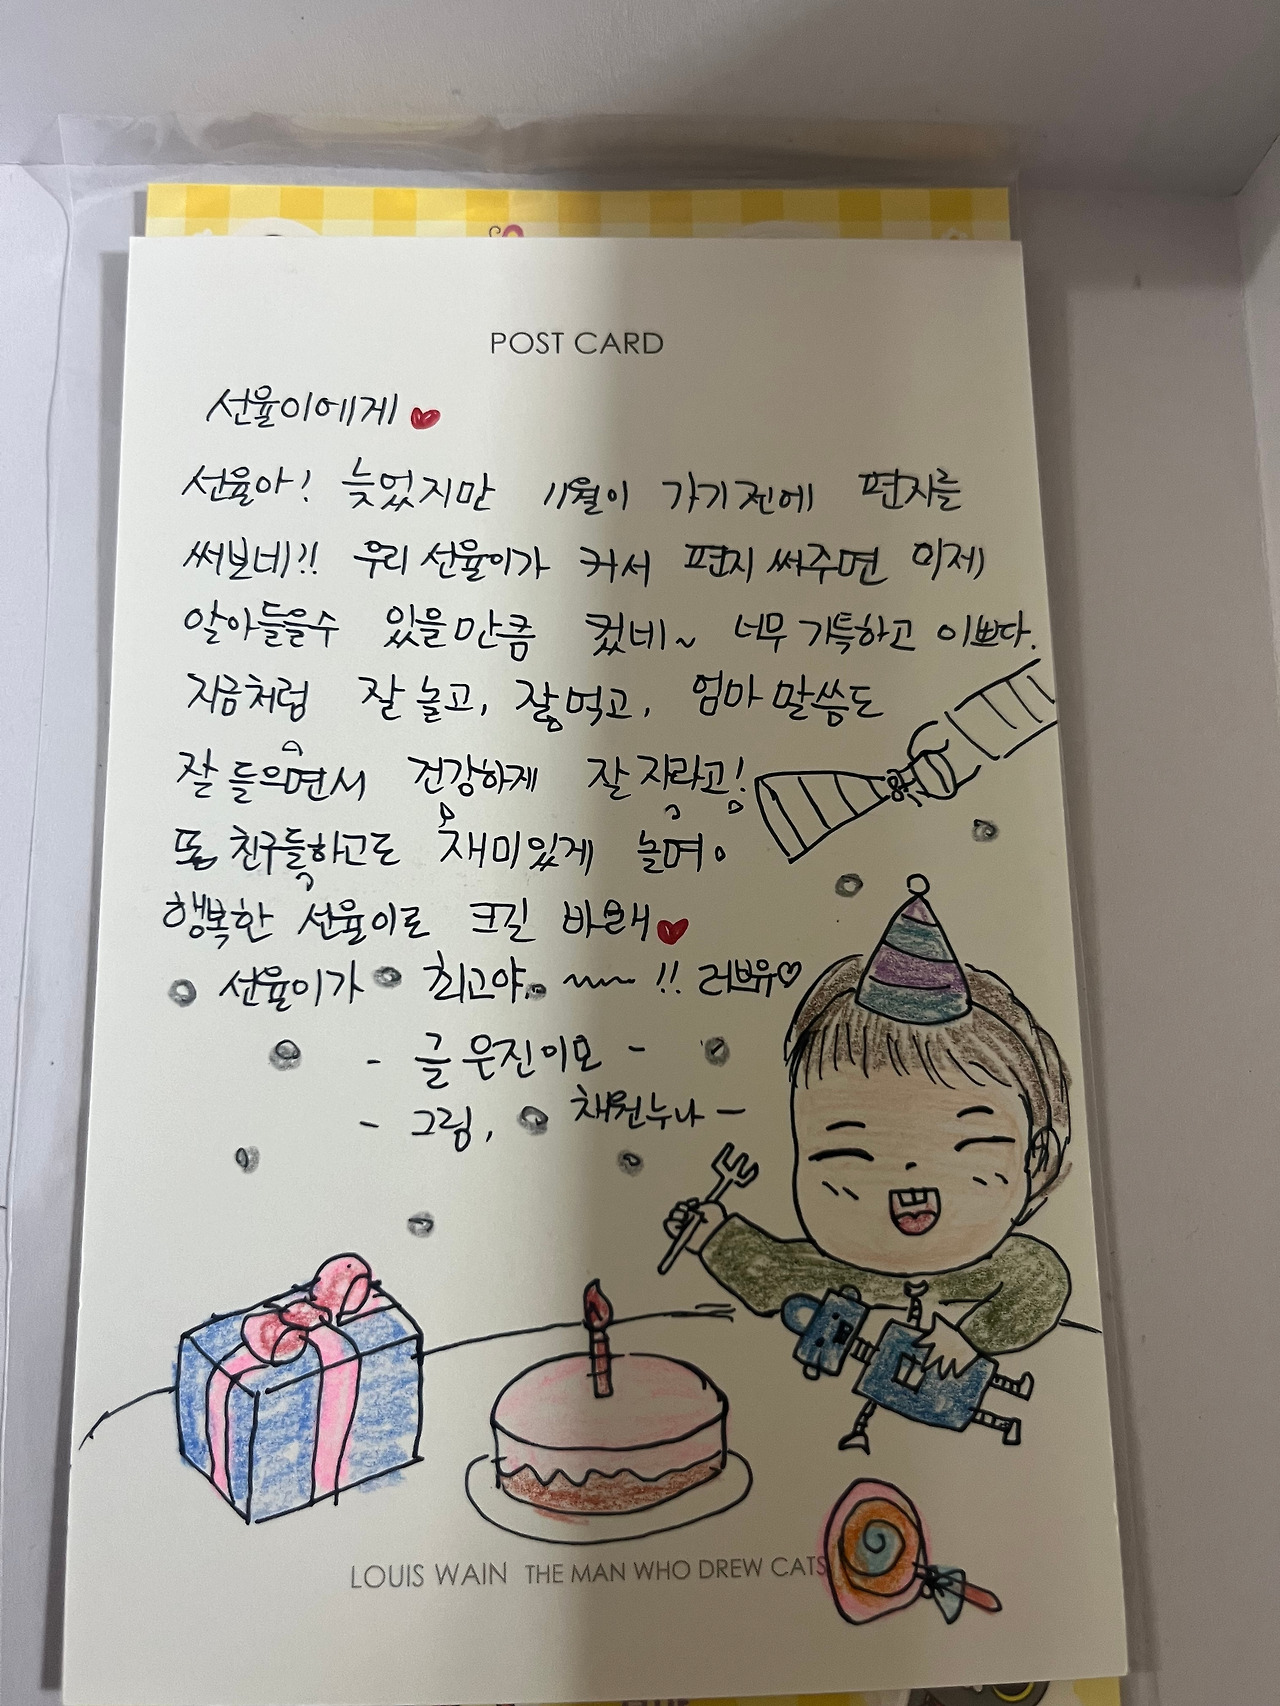 POST CARD
선율이에게
선율아! 늦었지만 11월이 가기전에 편지를
써보네!! 우리 선율이가 커서 편지 써주면 이제
알아들을수 있을만큼 컸네~ 너무 기특하고 이쁘다.
지금처럼 잘 놀고, 잘 먹고, 엄마 말씀도
잘 들으면서 건강하게 잘 자라고!
또 친구들하고도 재미있게 놀며
행복한 선율이로 크길 바랄게
선율이가 최고야 ~~ !! 러브유♡
- 글 은진이모 -
- 그림, 채원누나 -
LOUIS WAIN THE MAN WHO DREW CATS